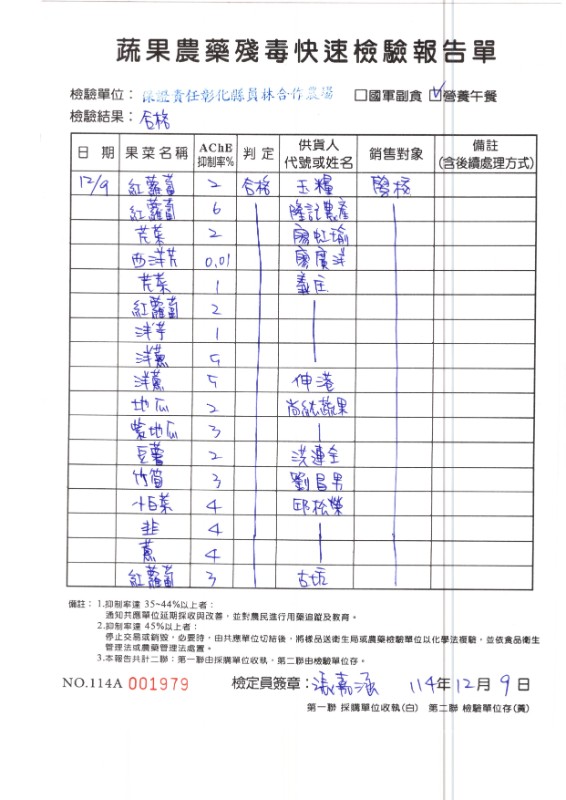 蔬果農藥殘毒快速檢驗報告單
檢驗單位：保證責任彰化縣員林合作農場 □國軍副食 ☑營養午餐
檢驗結果：合格
日期 果菜名稱 AChE抑制率% 判定 供貨人代號或姓名 銷售對象 備註(含後續處理方式)
12/9 紅蘿蔔 2 合格 玉糧 學校
紅蘿蔔 6 隆記農產
芹菜 2 廖虹瑜
西洋芹 0.01 廖廣洋
芹菜 1 義庄
紅蘿蔔 2
洋芋 1
洋蔥 5
洋蔥 5 伸港
地瓜 2 尚紘蔬果
紫地瓜 3
豆薯 2 洪連全
竹筍 3 劉昌男
小白菜 4 邱松榮
韭 4
蔥 4
紅蘿蔔 3 古坑
備註：1.抑制率達 35~44%以上者：
通知共應單位延期採收與改善，並對農民進行用藥追蹤及教育。
2.抑制率達 45%以上者：
停止交易或銷毀，必要時，由共應單位切結後，將樣品送衛生局或農藥檢驗單位以化學法複驗，並依食品衛生
管理法或農藥管理法處置。
3.本報告共計二聯：第一聯由採購單位收執，第二聯由檢驗單位存。
NO.114A 001979 檢定員簽章：張嘉涵 114年12月9日
第一聯 採購單位收執(白) 第二聯 檢驗單位存(黃)